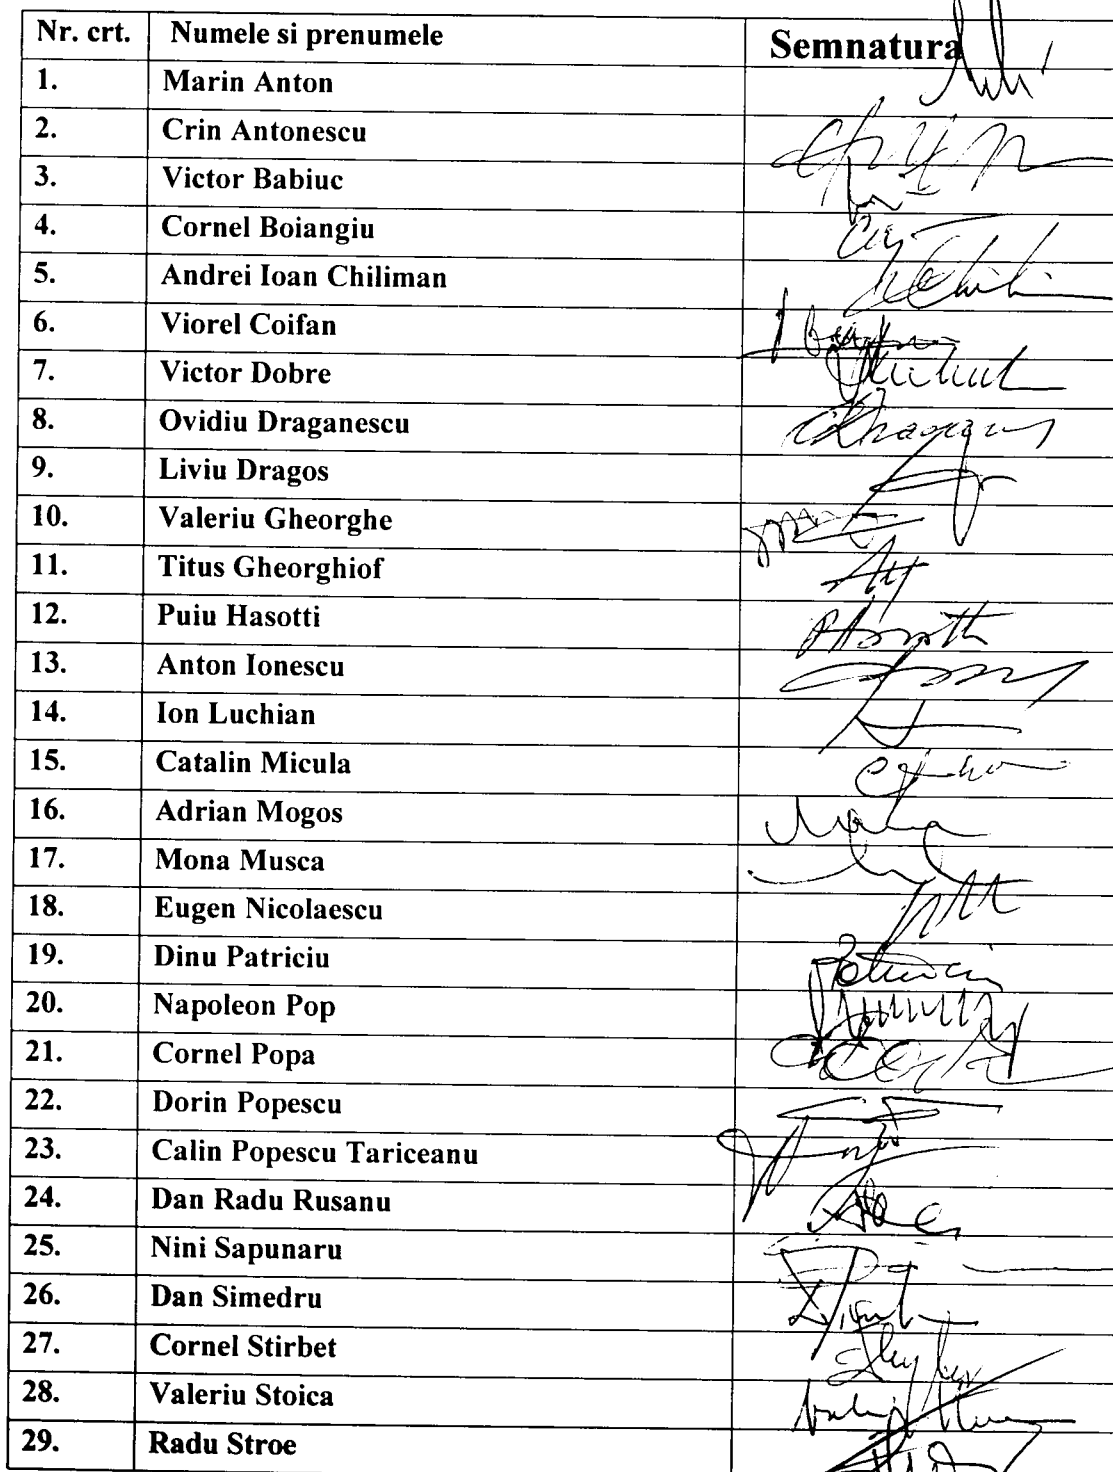 Nr. crt. Numele si prenumele Semnatura
1. Marin Anton
2. Crin Antonescu
3. Victor Babiuc
4. Cornel Boiangiu
5. Andrei Ioan Chiliman
6. Viorel Coifan
7. Victor Dobre
8. Ovidiu Draganescu
9. Liviu Dragos
10. Valeriu Gheorghe
11. Titus Gheorghiof
12. Puiu Hasotti
13. Anton Ionescu
14. Ion Luchian
15. Catalin Micula
16. Adrian Mogos
17. Mona Musca
18. Eugen Nicolaescu
19. Dinu Patriciu
20. Napoleon Pop
21. Cornel Popa
22. Dorin Popescu
23. Calin Popescu Tariceanu
24. Dan Radu Rusanu
25. Nini Sapunaru
26. Dan Simedru
27. Cornel Stirbet
28. Valeriu Stoica
29. Radu Stroe